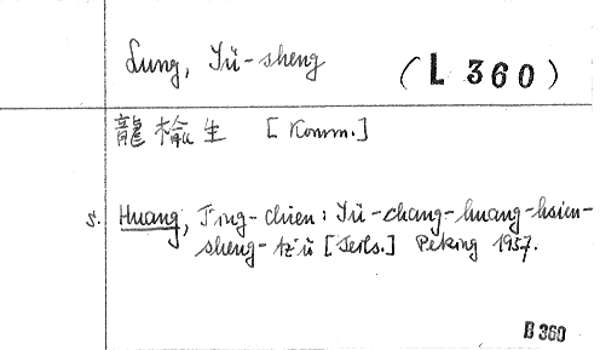 Lung, Yü-sheng (L 360)
龍榆生 [Komm.]
s. Huang, T'ing-chien: Yü-chang-huang-hsien-
sheng-tz'ŭ [Teils.] Peking 1957.
B 360